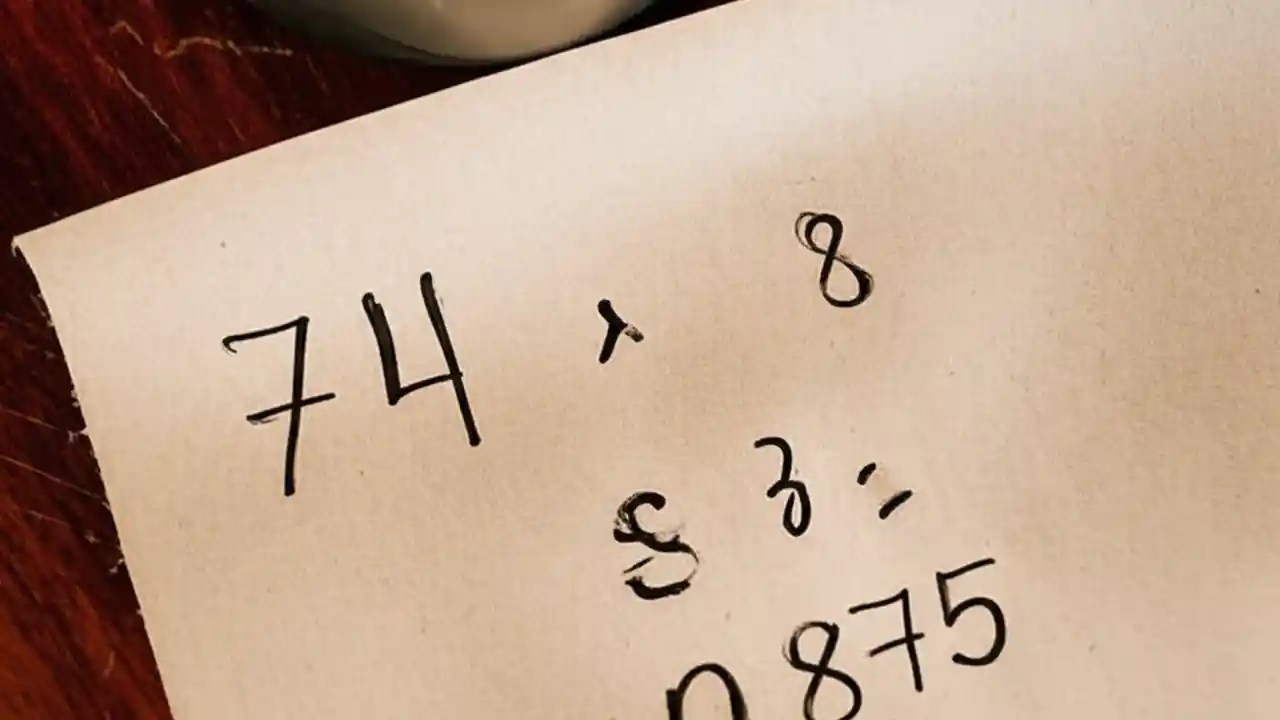 74 × 8
83 =
0875